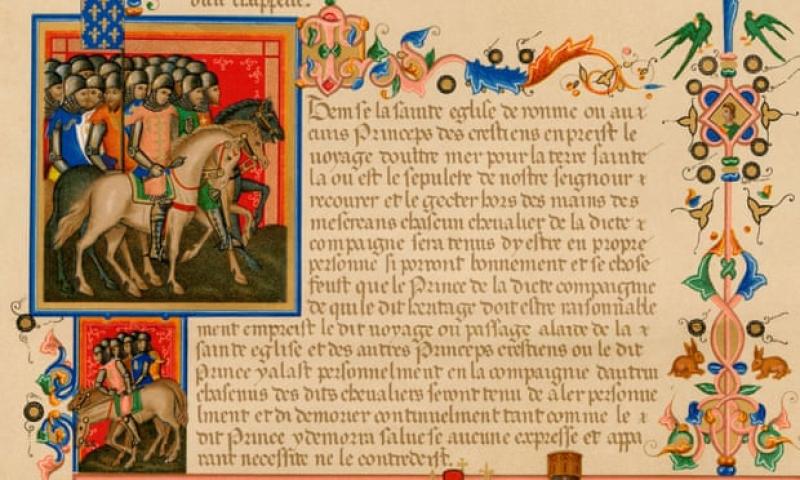 Item se la sainte eglise de romme ou aux
cuns Princeps des crestiens enpreist le
voyage doultre mer pour la terre sainte
la ou est le sepulcre de nostre seignour &
recourer et le gecter hors des mains des
mescreans chascun chevalier de la dicte &
compaignie sera tenus dy estre en propre
personne si porront bonnement et se chose
feust que le Prince de la dicte compaignie
de qui le dit heritage doit estre raisonnable
ment empreist le dit voyage ou passage alaide de la &
sainte eglise et des autres Princeps crestiens ou le dit
Prince y alast personnelment en la compaignie dautrui
chascuns des dits chevaliers seront tenu de aler personne
lment et di demorer continuelment tant comme le &
dit Prince y demorra salue se aucune expresse et appa
rant necessite ne le contrederist.